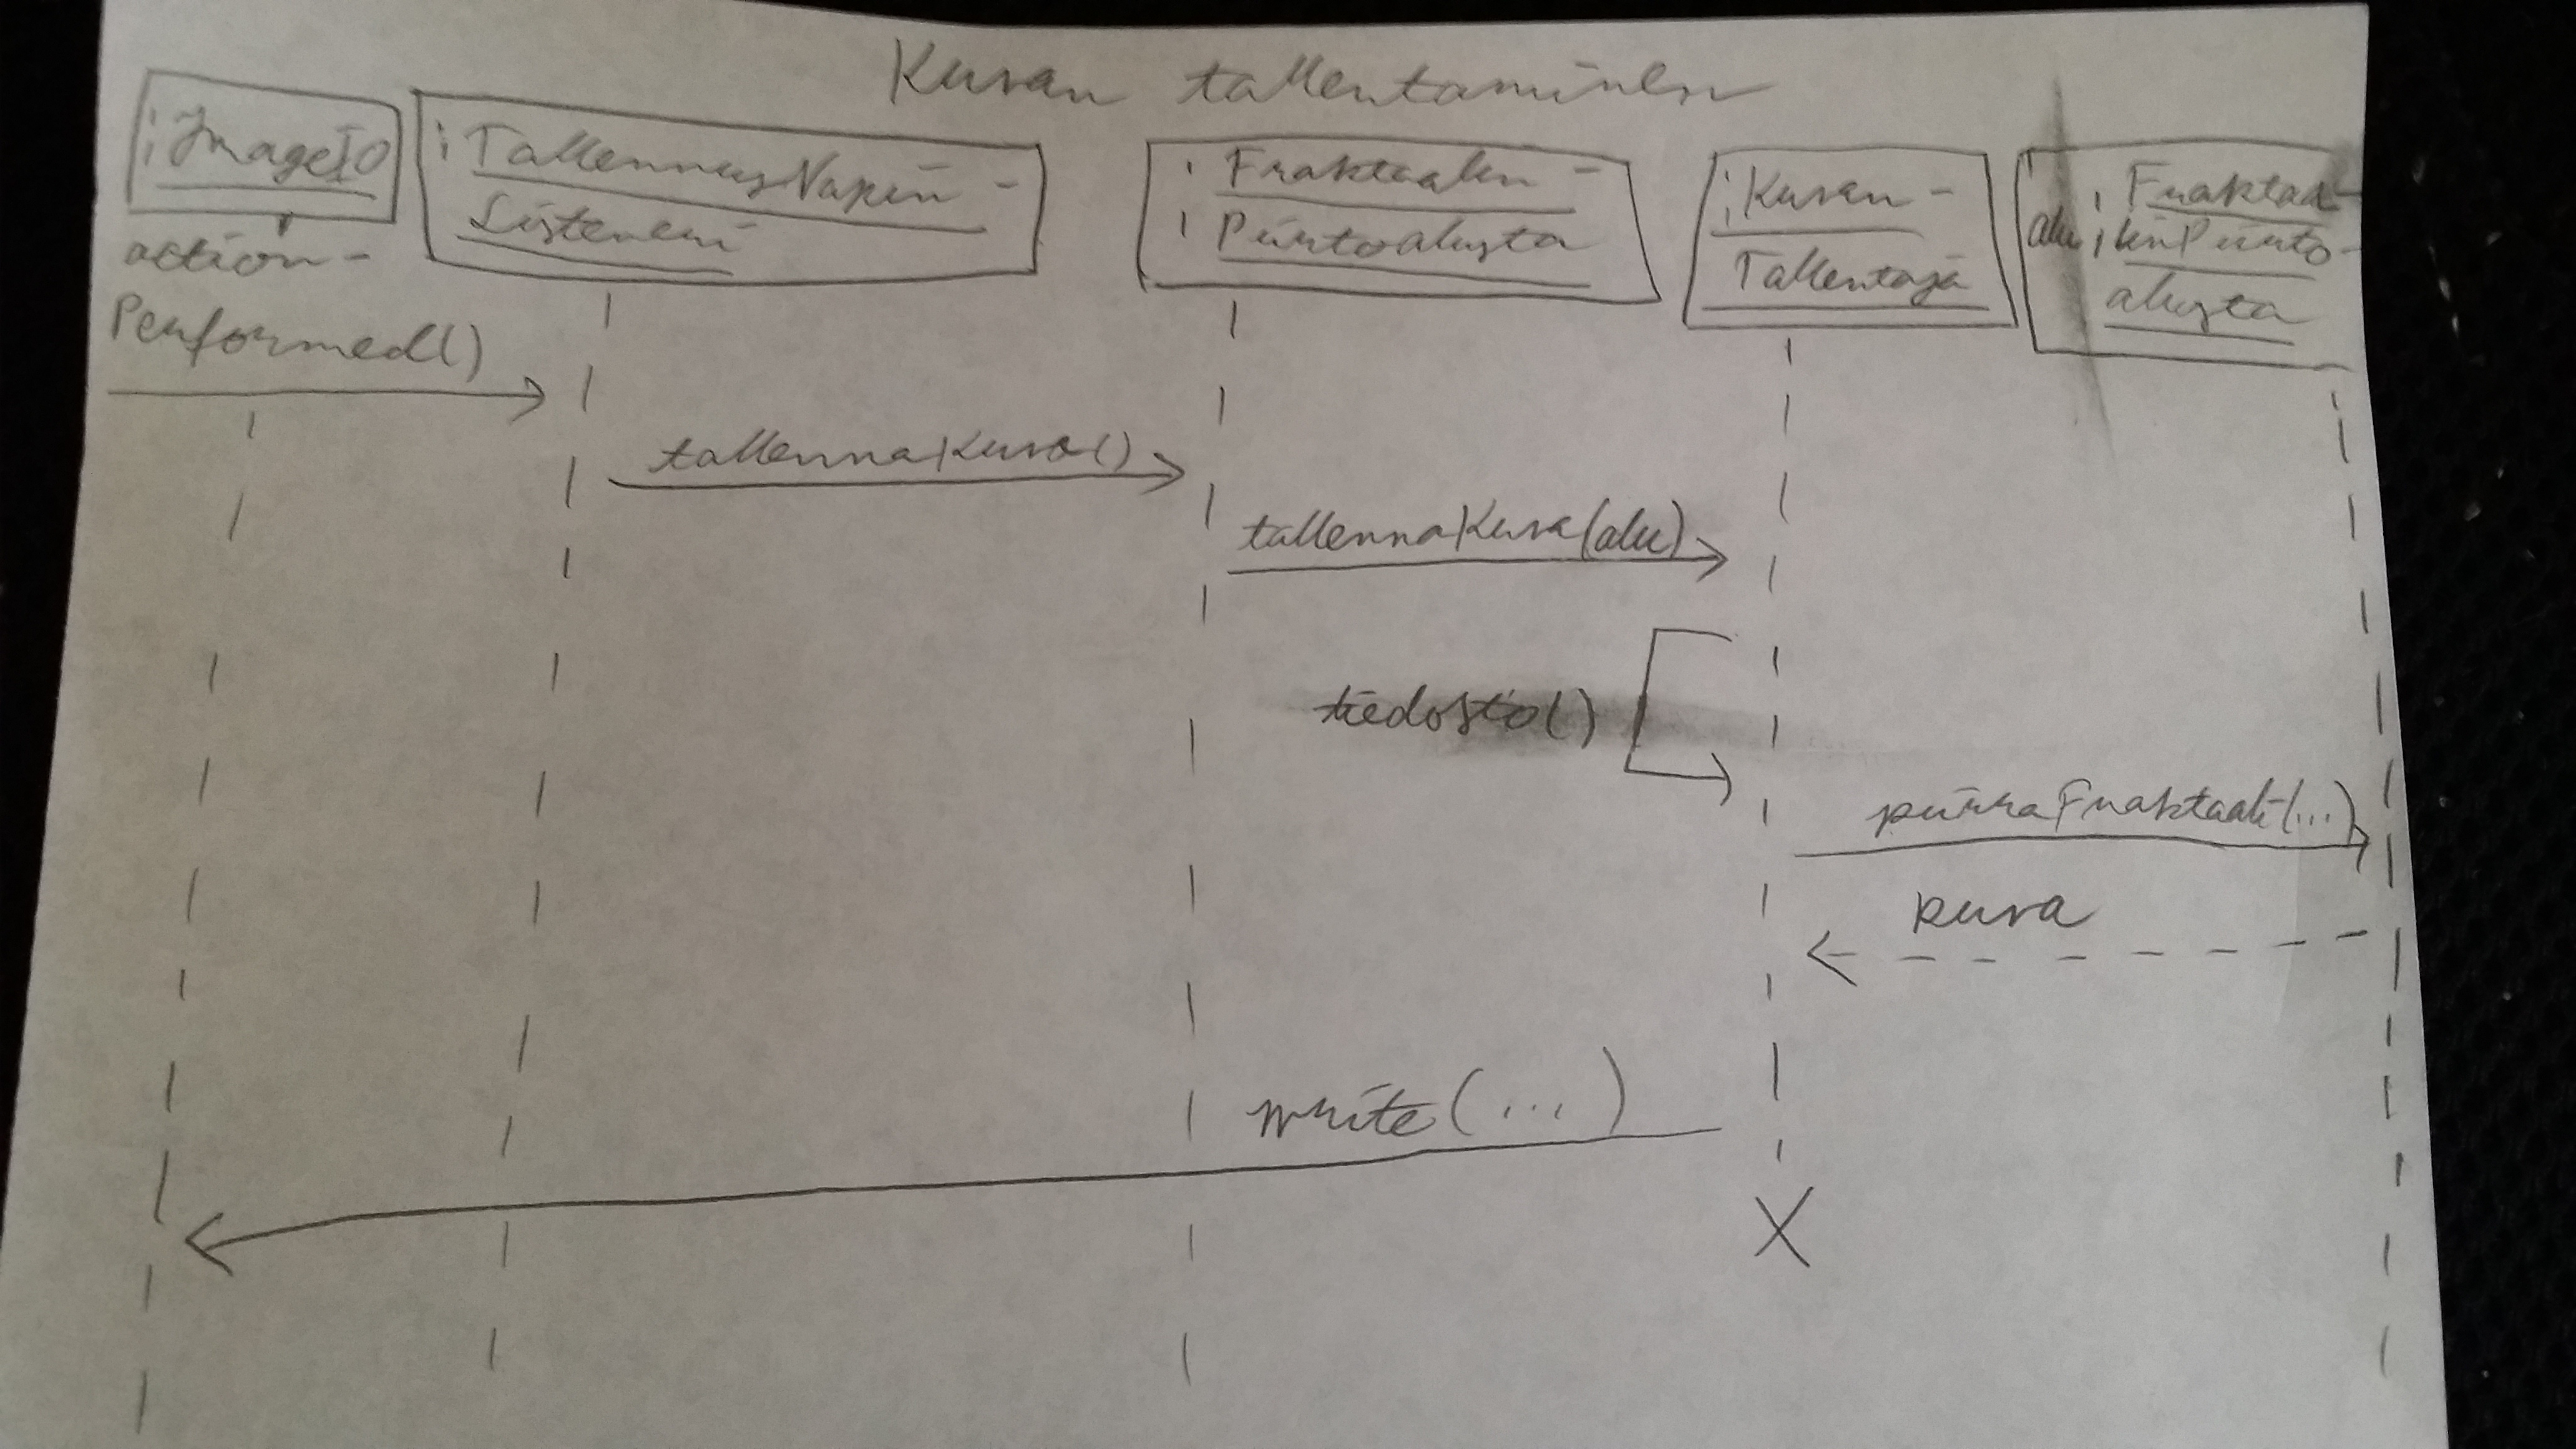 Kuvan tallentaminen
: ImageIO
: TallennusNapin-
Listeneri
: Fraktaalin-
: Piirtoalusta
: Kuvan-
Tallentaja
: Fraktaa-
alu : linPiirto-
alusta
action-
Performed()
tallennaKuva()
tallennaKuva(alu)
tiedosto()
piirraFraktaali(...)
kuva
write(...)